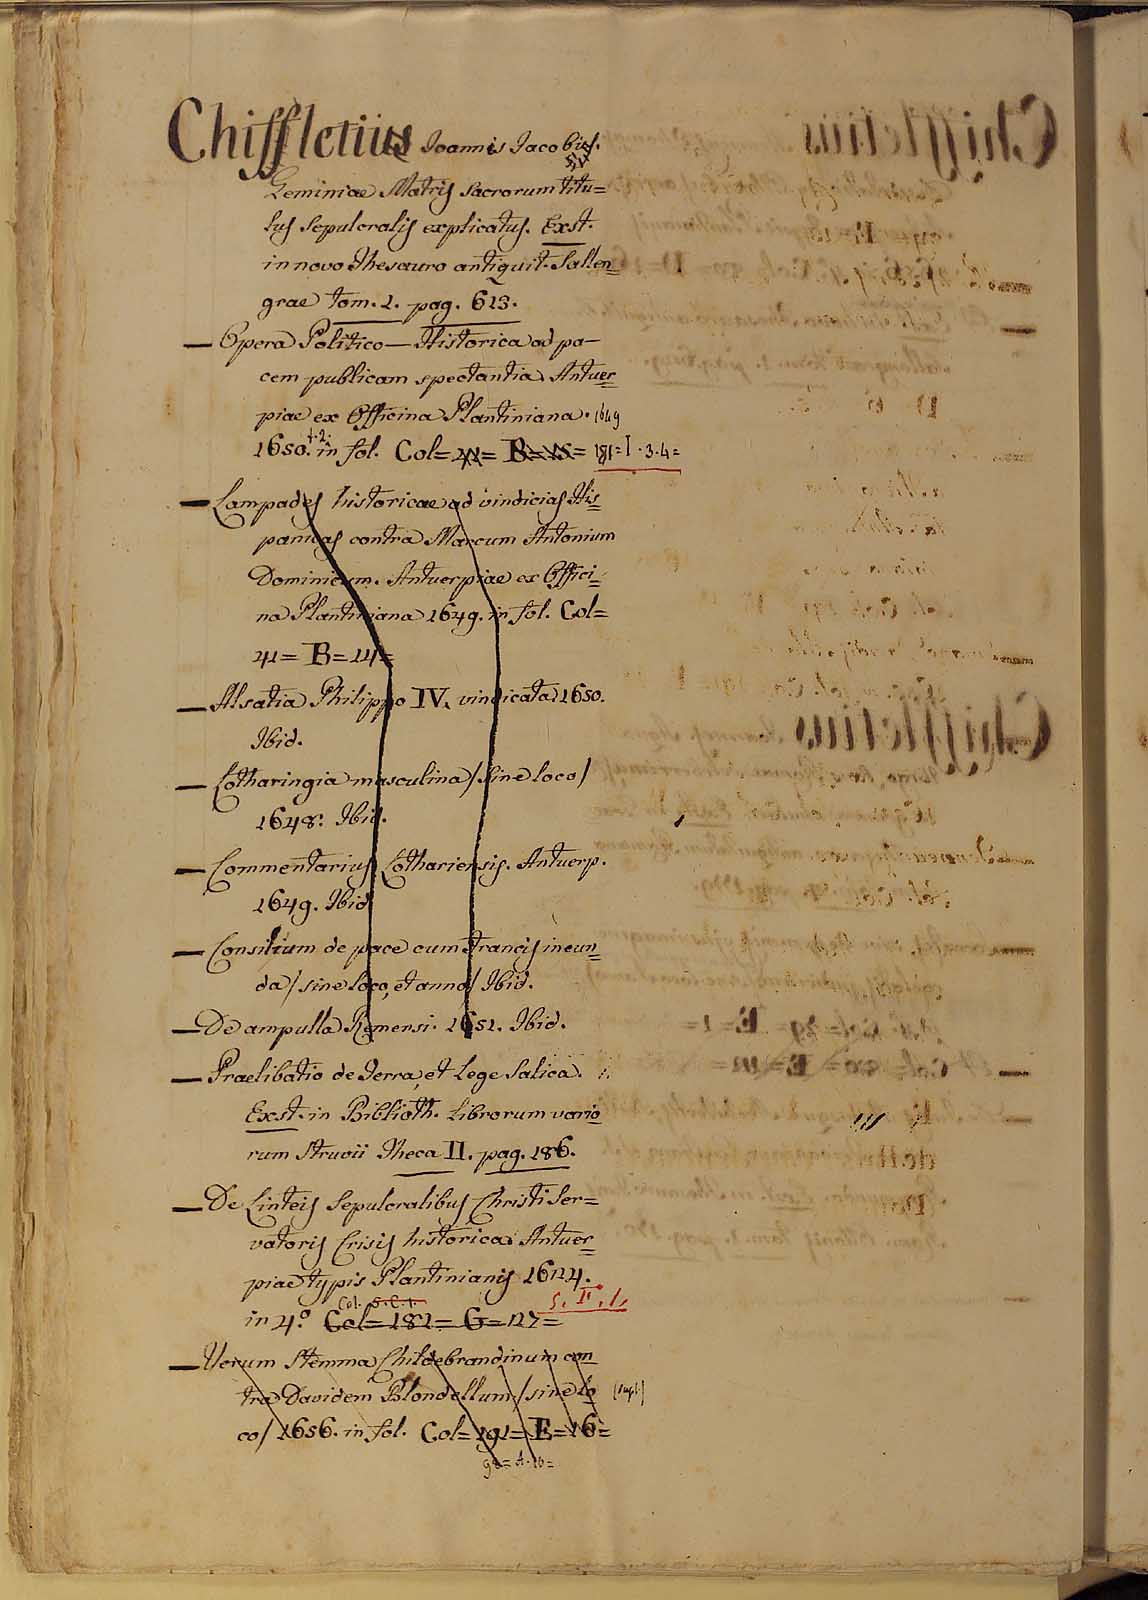 Chiffletius Joannis Jacobus.
Geminiae Matris Sacrorum titu=
lus Sepulcralis explicatus. Exst.
in novo Thesauro antiquit. Sallen=
grae tom. 1. pag. 613.
— Opera Politico — Historica ad pa-
cem publicam spectantia. Antuer=
piae ex Officina Plantiniana. 1649
1650. in fol. Col= B= 181=I.3.4=
— Lampades historicae ad vindicias His=
panicas contra Marcum Antonium
Dominicum. Antuerpiae ex Offici=
na Plantiniana 1649. in fol. Col=
41= B= 14=
— Alsatia Philippo IV. vindicata 1650.
Ibid.
— Lotharingia masculina / sine loco /
1648. Ibid.
— Commentarius Lothariensis. Antuerp.
1649. Ibid.
— Consilium de pace cum Francis ineun=
da / sine loco, et anno / Ibid.
— De ampulla Remensi. 1651. Ibid.
— Praelibatio de Terra, et Lege Salica.
Exst. in Biblioth. Librorum vario
rum Struvii Theca II. pag. 186.
— De Linteis Sepulcralibus Christi Ser=
vatoris Crisis historica. Antuer=
piae typis Plantinianis 1624.
Col. S.C.1. 5. II. 1.
in 4.º Col= 181= G= 127=
— Verum Stemma Childebrandinum con
tra Davidem Blondellum / sine lo
co / 1656. in fol. Col= 191= E= 16=
98= A. 10=